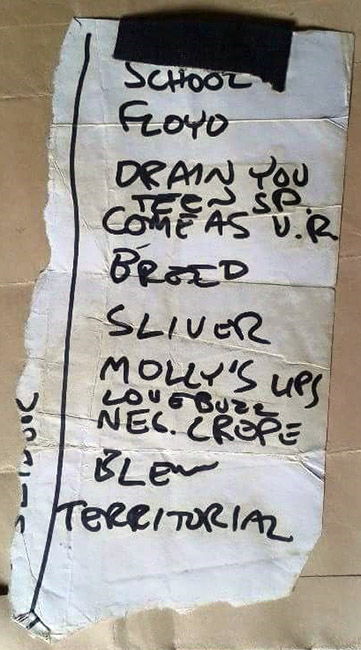 SCHOOL
FLOYD
DRAIN YOU
TEEN SP.
COME AS U.R
BREED
SLIVER
MOLLY'S LIPS
LOVEBUZZ
NEG. CREPE
BLEW
TERRITORIAL